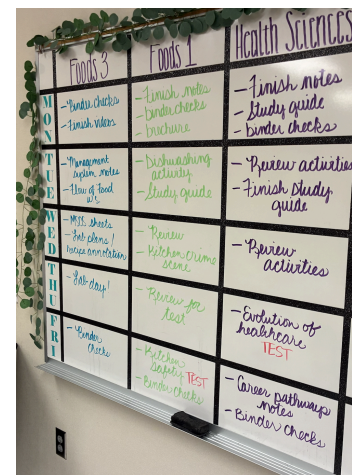 Foods 3
Foods 1
Health Sciences
MON
- Binder checks
- Finish videos
- Finish notes
- binder checks
- brochure
- Finish notes
- Study guide
- binder checks
TUE
- Management
system notes
- Flow of Food
- Dishwashing
activity
- Study guide
- Review activities
- Finish study
guide
WED
sheets
- Lab plans/
recipe annotation
- Review
- Kitchen crime
scene
- Review
activities
THU
- Lab day!
- Review for
test
- Evolution of
healthcare
TEST
FRI
- Binder
checks
- Kitchen
Safety TEST
- Binder checks
- Career pathways
notes
- Binder checks